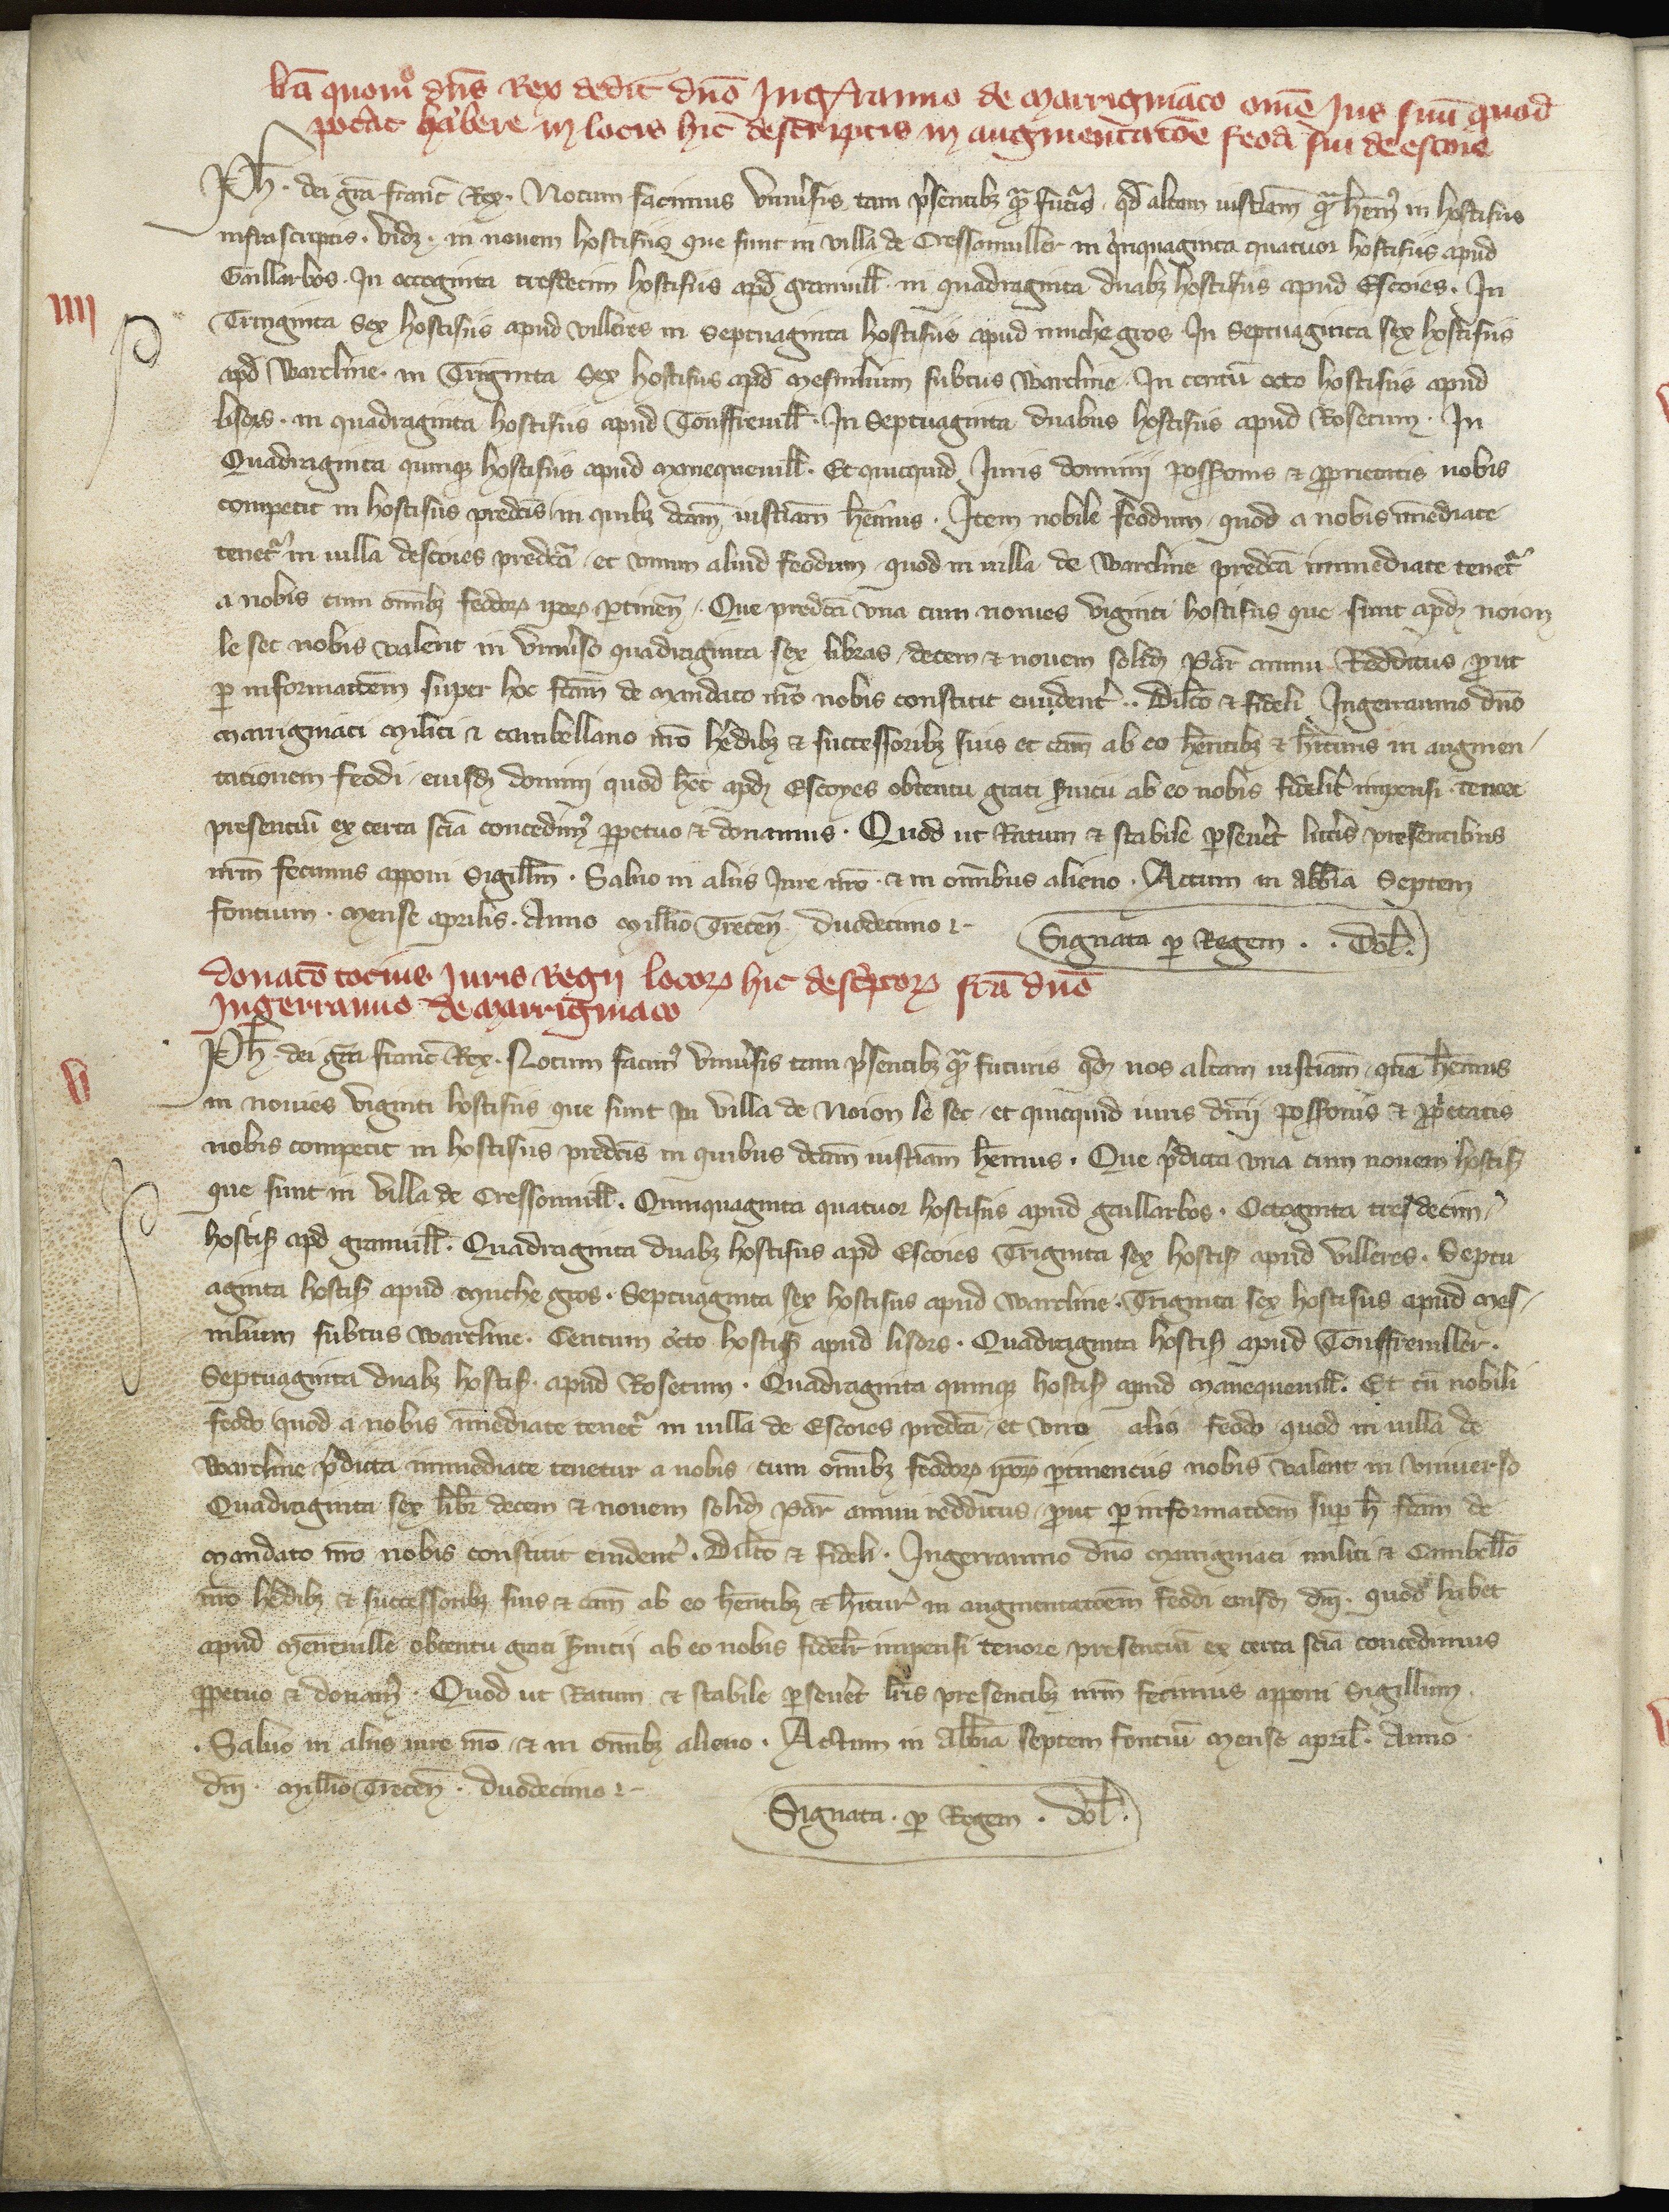 lr̃a quom̊ dn̄s Rex dedit dn̄o Ingerranno de marrigniaco om̄e Jus suū quod
pot̾at habere in locis hic descriptis in augmentatōe feodi sui de escoies
Ph̄. dei gr̃a franc̃ Rex. Notum facimus vniu̾sis tam p̾sentibꝫ qᷓ futur̾. qđ altam iusticiam̄ qᷓ hēm᷒ in hostisiis
infrascriptis. vidꝫ. in nouem hostisiis que sunt in villa de Cressonuiller in quinquaginta quatuor hostisiis apud
Gaillarbos. In octoginta tresdecim hostisiis apđ granuill̃. in quadraginta duabꝫ hostisiis apud Escoies. In
Tringinta Sex hostisiis apud villeres in Septuaginta hostisiis apud muchegros In Septuaginta sex hostisiis
apđ Warcline. in Triginta Sex hostisiis apđ mesnilium subtus Warcline. In centū octo hostisiis apud
lisors. in quadraginta hostisiis apud Touffreuill̃. In Septuaginta duabus hostisiis apud Rosetum. In
Quadraginta quinqꝫ hostisiis apud manequeuill̃. Et quicquid Juris dominij possessionis & ꝓprietatis nobis
competit in hostisiis predc̄is in quibꝫ dc̄am iustic̄iam hēmus. Item nobile feodum quod a nobis īmediate
tenet᷑ in villa descoies predc̄a et vnum aliud feodum quod in villa de Warcline predc̄a inmediate tenet᷑
a nobis cum om̄ibꝫ feodoꝝ ip̄oꝝ ꝑtinen̄. Que predc̄a vna cum nouies viginti hostisiis que sunt apđ noion
le sec nobis valent in vniu̾so quadraginta sex libras decem & nouem solid̄ Par̄ annui Redditus ꝓut
ꝑ informatōem super hoc fc̄am de mandato nr̄o nobis constitit euident̾.. Dilc̄o & fideli Ingerranno dn̄o
marrigniaci militi & cambellano nr̄o h̾edibꝫ & successoribꝫ suis et cām ab eo hēntibꝫ & h̄ituris in augmen
tacionem feodi eiusđ domini quod h̄et apđ Escoyes obtentu grati s̾uicii ab eo nobis fidelit̾ impensi tenore
presentiū ex certa scīa concedim᷒ ꝑpetuo & donamus. Quod ut Ratum & stabile ꝑseu̾et litt̾is presentibus
nr̄m fecimus apponi Sigillm̄. Saluo in aliis Jure nr̄o. & in omībus alieno. Actum in abb̄ia Septem
fontium. mense aprilis. Anno Millō Trecen̄. duodecimo ⁊-
Signata ꝑ Regem.. Dol̄.
donacō tocius Juris Regij locoꝝ hic desc̾ptoꝝ fc̄a dn̄o
Ingerranno de marrigniaco
Ph̄. dei gr̄a franc̄ Rex. Notum facim᷒ vniu̾sis tam p̾sentibꝫ qᷓ futuris qđ nos altam iustic̄iam quā hēmus
in nouies viginti hostisiis que sunt in villa de Noion le sec et quicquid iuris dn̄ij possessionis & ꝓp̾etatis
nobis competit in hostisiis predc̄is in quibus dc̄am iustic̄iam hēmus. Que p̾dicta vna cum nouem hostis̄
que sunt in villa de Cressonuill̃. Quinquaginta quatuor hostisiis apud gaillarbos. Octoginta tresdecim
hostis̄ apđ granuill̃. Quadraginta duabꝫ hostisiis apđ Escoies Triginta sex hostis̄ apud villeres. Septu
aginta hostis̄ apud muchegros. Septuaginta sex hostisiis apud Warcline. Triginta sex hostisiis apud mes
nilium subtus Warcline. Centum octo hostis̄ apud lisors. Quadraginta hostis̄ apud Touffreuiller.
Septuaginta duabꝫ hostis̄. apud Rosetum. Quadraginta quinqꝫ hostis̄ apud manequeuill̃. Et cū nobili
feodo quod a nobis īmediate tenet᷑ in villa de Escoies predc̄a et vno alio feodo quod in villa de
Warcline p̾dicta inmediate tenetur a nobis cum om̄ibꝫ feodoꝝ ip̄oꝝ ꝑtinenciis nobis valent in vniuerso
Quadraginta sex libr̄ decem & nouem solid̄ Par̄ annui redditus ꝓut ꝑ informatōem sup̄ h̄ fc̄am de
mandato nr̄o nobis constitit euident̾. Dilc̄o & fideli. Ingerranno dn̄o marrigniaci militi & Cambell̄o
nr̄o h̾edibꝫ & successoribꝫ suis & cām ab eo hēntibꝫ & h̄itur̄ in augmentatōem feodi eiusđ dn̄i. quod habet
apud meneuille obtentu grati s̾uicij ab eo nobis fidelit̾ impensi tenore presentiū ex certa scīa concedimus
ꝑpetuo & donam᷒. Quod ut Ratum & stabile ꝑseu̾et lr̄is presentibꝫ nr̄m fecimus apponi Sigillum
. Saluo in aliis iure nr̄o & in om̄ibꝫ alieno. Actum in abb̄ia septem fontiū mense april̄. Anno
dn̄i. Millō Trecen̄. duodecimo ⁊-
Signata. ꝑ Regem. dol̄.
iiii
v